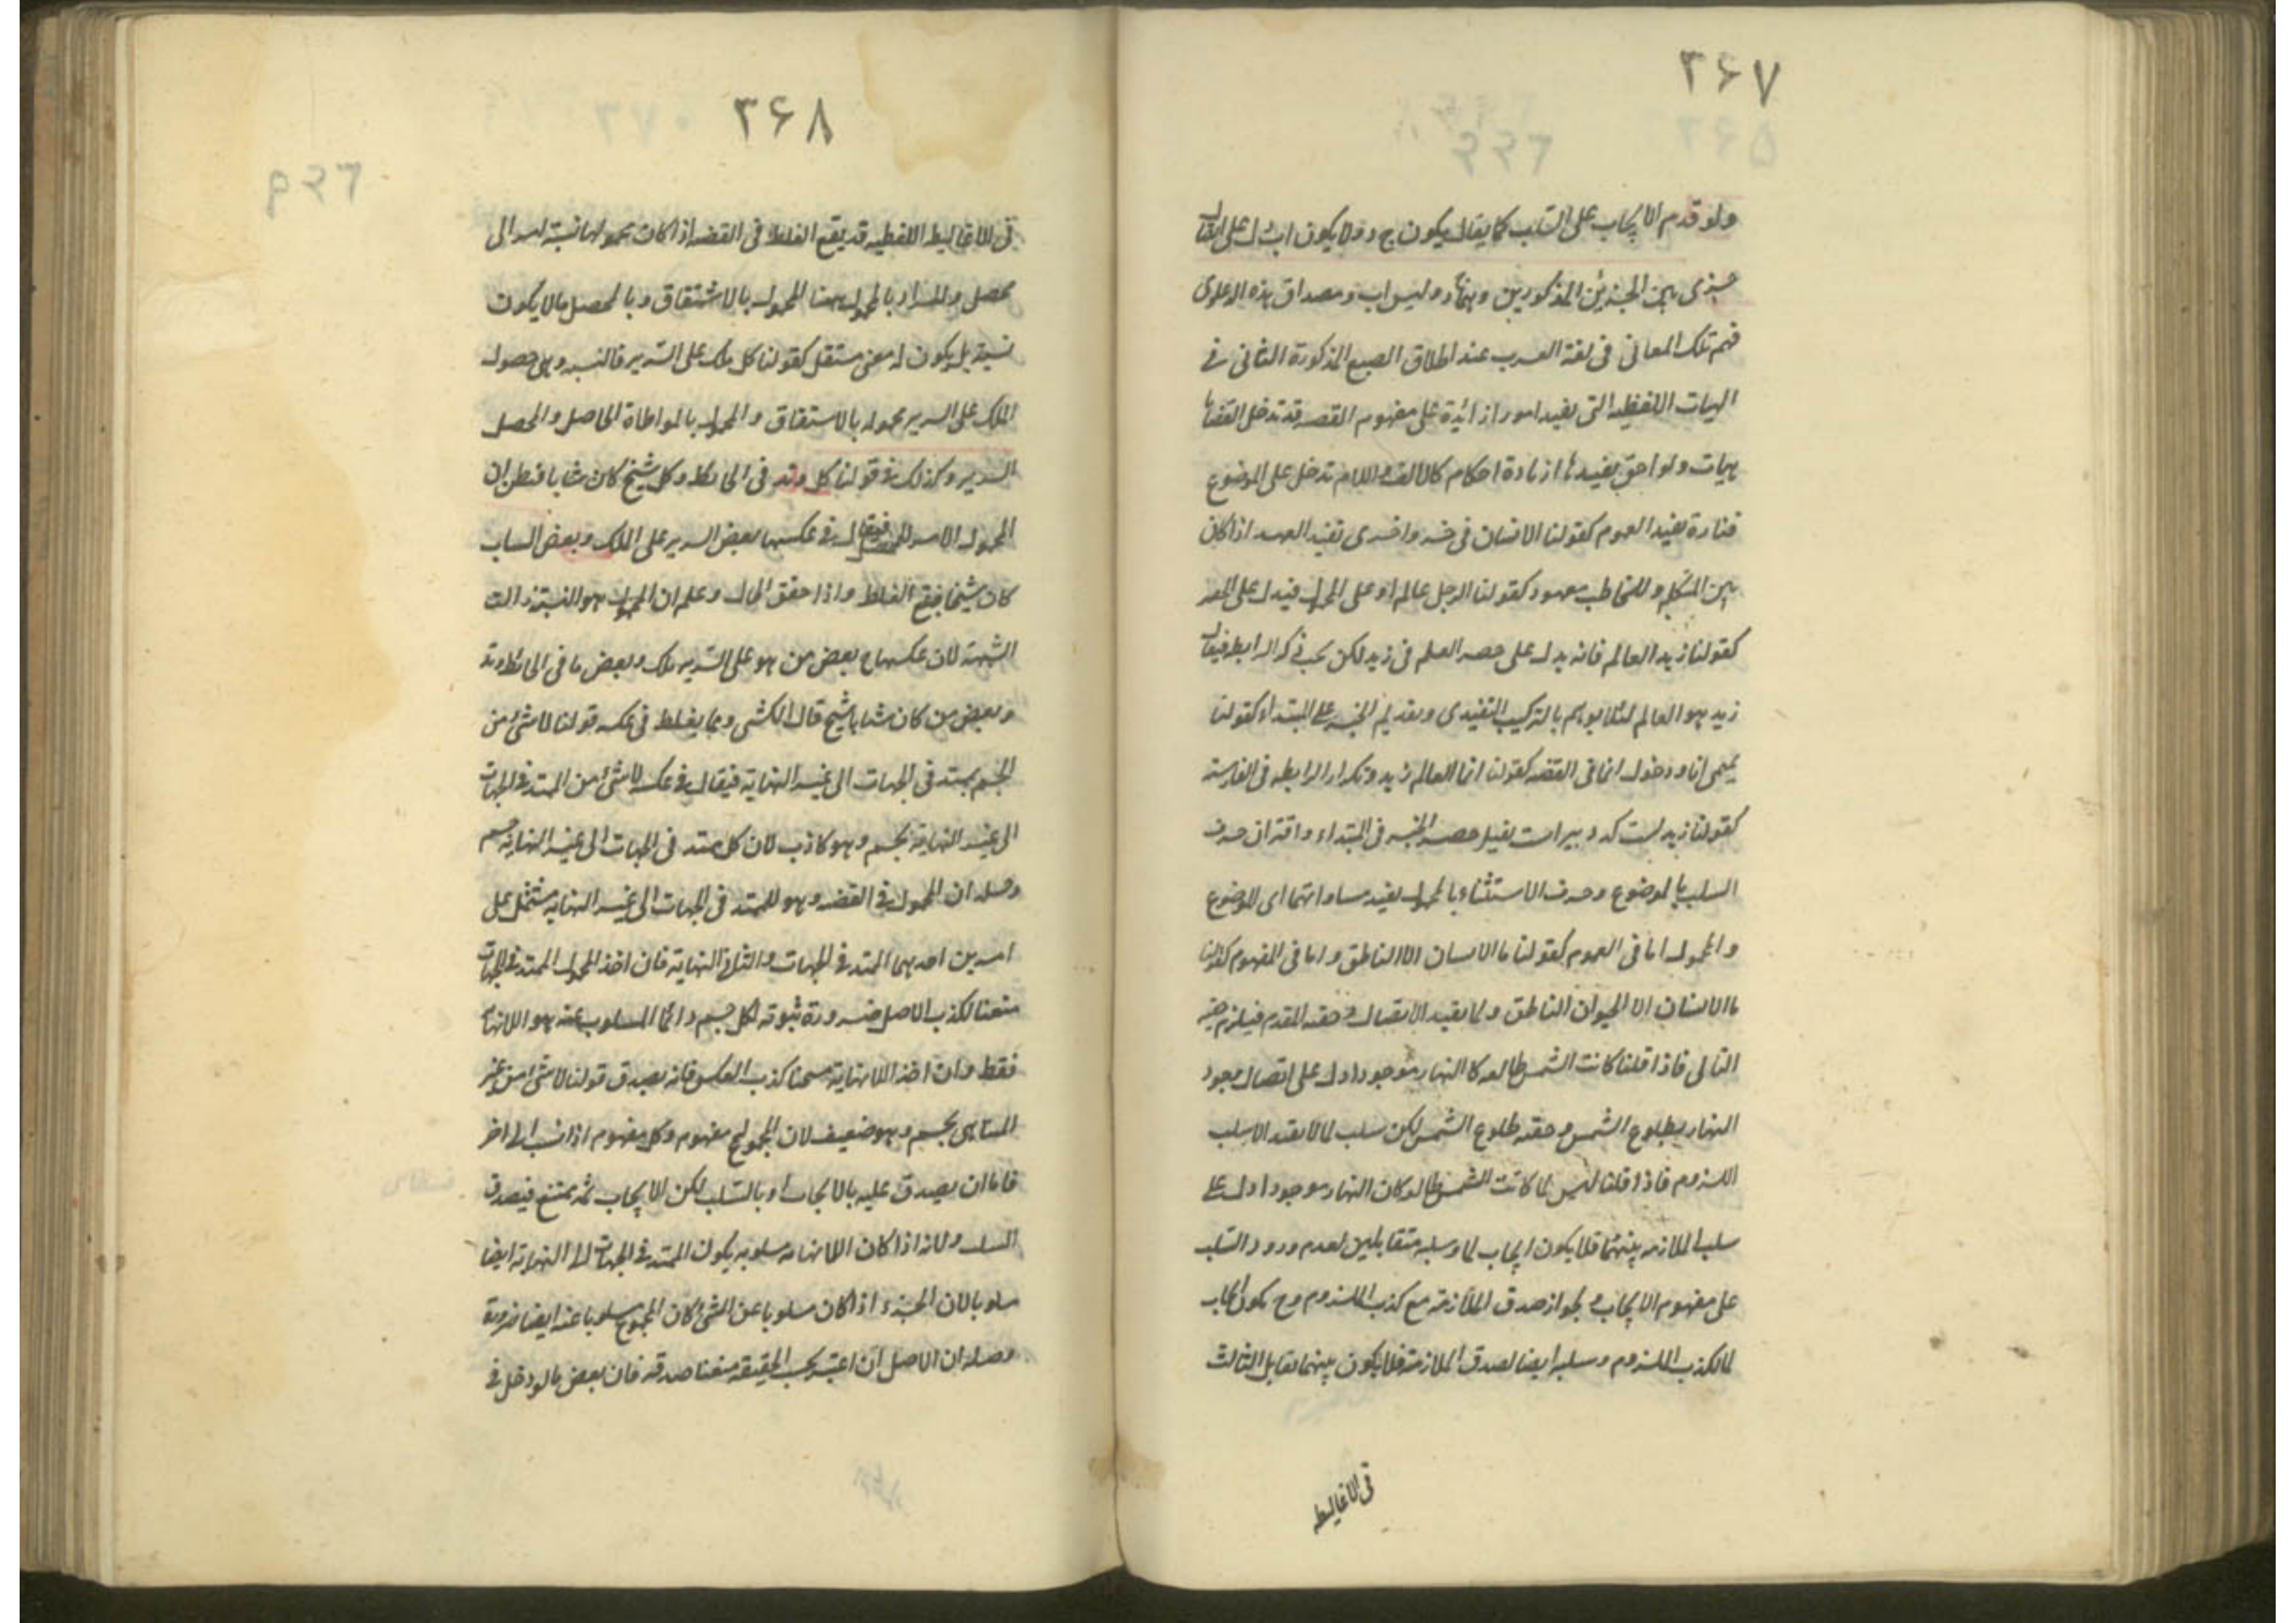 ٣۶٧
ولو قدم الايجاب على السلب كما يقال يكون ج د ولا يكون اب دل على اتصال
جزئى بين الجزئين المذكورين وهما ج د وليس اب ومصداق هذه الدعاوى
فهم تلك المعانى فى لغة العرب عند اطلاق الصيغ المذكورة الثانى فى
الهيات اللفظيه التى يفيد امورا زائدة على مفهوم القضيه قد تدخل القضايا
هيات ولواحق يفيدها زيادة احكام كالالف واللام تدخل على الموضوع
فتارة يفيد العموم كقولنا الانسان فى خسر واخرى تفيد العهد اذا كان
بين المتكلم والمخاطب معهود كقولنا الرجل عالم او على المحمول فيدل على الحصر
كقولنا زيد العالم فانه يدل على حصر العلم فى زيد لكن يجب ذكر الرابط فيقال
زيد هو العالم لئلا يوهم بالتركيب التقييدى وتقديم الخبر على المبتداء كقولنا
تميمى انا ودخول انما فى القضيه كقولنا انما العالم زيد وتكرار الرابطه فى الفارسيه
كقولنا زيد است كه دبير است يفيد حصر الخبر فى المبتداء واقتران حرف
السلب بالموضوع وحرف الاستثناء بالمحمول يفيد مساواتهما اى الموضوع
والمحمول اما فى العموم كقولنا ما الانسان الا الناطق واما فى المفهوم كقولنا
ما الانسان الا الحيوان الناطق ولما يفيد الاتصال وحقيه المقدم فيلزم حقيه
التالى فاذا قلنا لما كانت الشمس طالعه كان النهار موجودا دل على اتصال وجود
النهار بطلوع الشمس وحقيه طلوع الشمس لكن سلب لما لا يفيد الا سلب
اللزوم فاذا قلنا ليس لما كانت الشمس طالعه كان النهار موجودا دل على
سلب الملازمه بينهما فلا يكون ايجاب لما وسلبه متقابلين لعدم ورود السلب
على مفهوم الايجاب ولجواز صدق الملازمة مع كذب الملزوم وح يكون ايجاب
لما لكذب الملزوم وسلبه ايضا لصدق الملازمة فلا يكون بينهما تقابل الثالث
فى الاغاليط
٣۶٨
فى الاغاليط اللفظيه قد يقع الغلط فى القضيه اذا كان محمولها نسبة امر الى
محصل والمراد بالمحمول ههنا المحمول بالاشتقاق وبالمحصل ما لا يكون
نسبة بل يكون له معنى مستقل كقولنا كل ملك على السرير فالنسبه وهى حصول
الملك على السرير محموله بالاشتقاق والمحمول بالمواطاة الحاصل والمحصل
السرير وكذلك فى قولنا كل وتد فى الحائط وكل شيخ كان شابا فيظن ان
المحمول الامر المحصل فيقال فى عكسها بعض السرير على الملك وبعض الشاب
كان شيخا فيقع الغلط واذا حقق الحال وعلم ان المحمول هو النسبة زالت
الشبهة لان عكسها ح بعض من هو على السرير ملك وبعض ما فى الحائط وتد
وبعض من كان شابا شيخ قال الكشى ومما يغلط فى عكسه قولنا لا شئ من
الجسم بممتد فى الجهات الى غير النهاية فيقال فى عكسه لا شئ من الممتد فى الجهات
الى غير النهاية بجسم وهو كاذب لان كل ممتد فى الجهات الى غير النهاية جسم
وحله ان المحمول فى القضيه وهو الممتد فى الجهات الى غير النهايه مشتمل على
امرين احدهما الممتد فى الجهات والثانى النهاية فان اخذ المحمول الممتد فى الجهات
منعنا لكذب الاصل ضرورة ثبوته لكل جسم وانما المسلوب عنه هو اللانهاية
فقط وان اخذ اللانهاية منعنا كذب العكس فانه يصدق قولنا لا شئ من غير
المتناهى بجسم وهو ضعيف لان المجموع مفهوم وكل مفهوم اذا نسب الى اخر
فاما ان يصدق عليه بالايجاب او بالسلب لكن الايجاب ثمه ممتنع فيصدق
السلب ولانه اذا كان اللانهايه مسلوبه يكون الممتد فى الجهات الى النهاية ايضا
مسلوبا لان الجزء اذا كان مسلوبا عن الشئ كان المجموع مسلوبا عنه ايضا ضرورة
وحله ان الاصل ان اعتبر بحسب الحقيقة منعنا صدقه فان بعض ما لو دخل فى